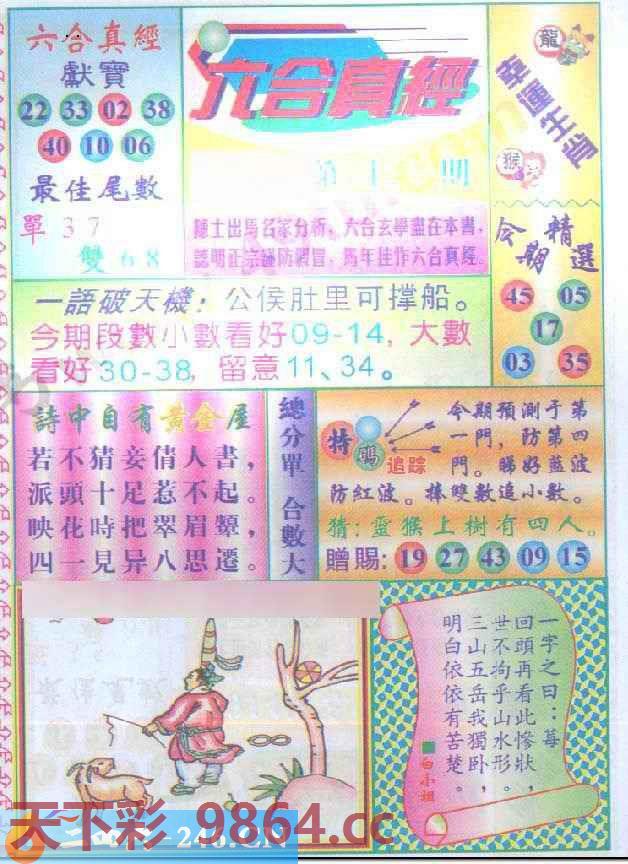 六合真經
獻寶
22 33 02 38
40 10 06
最佳尾數
單 3 7
雙 6 8
六合真經
第十 期
六合玄學盡在本書，
馬年佳作六合真經。
龍
幸運生肖
猴
今期精選
45 05
17
03 35
一語破天機：公侯肚里可撑船。
今期段數小數看好09-14，大數
看好30-38，留意11、34。
詩中自有黃金屋
若不猜妾倩人書，
派頭十足惹不起。
映花時把翠眉顰，
四一見异八思遷。
總分單 合數大
特
碼
追踪
今期預測于第
一門，防第四
門。睇好藍波
防紅波。捧雙數追小數。
猜：靈猴上樹有四人。
贈賜：19 27 43 09 15
一字之曰：莓
回頭再看此慘狀，
世不拘乎山水形。
三山五岳我獨卧，
明白依依有苦楚。
白小姐
天下彩 9864.cc